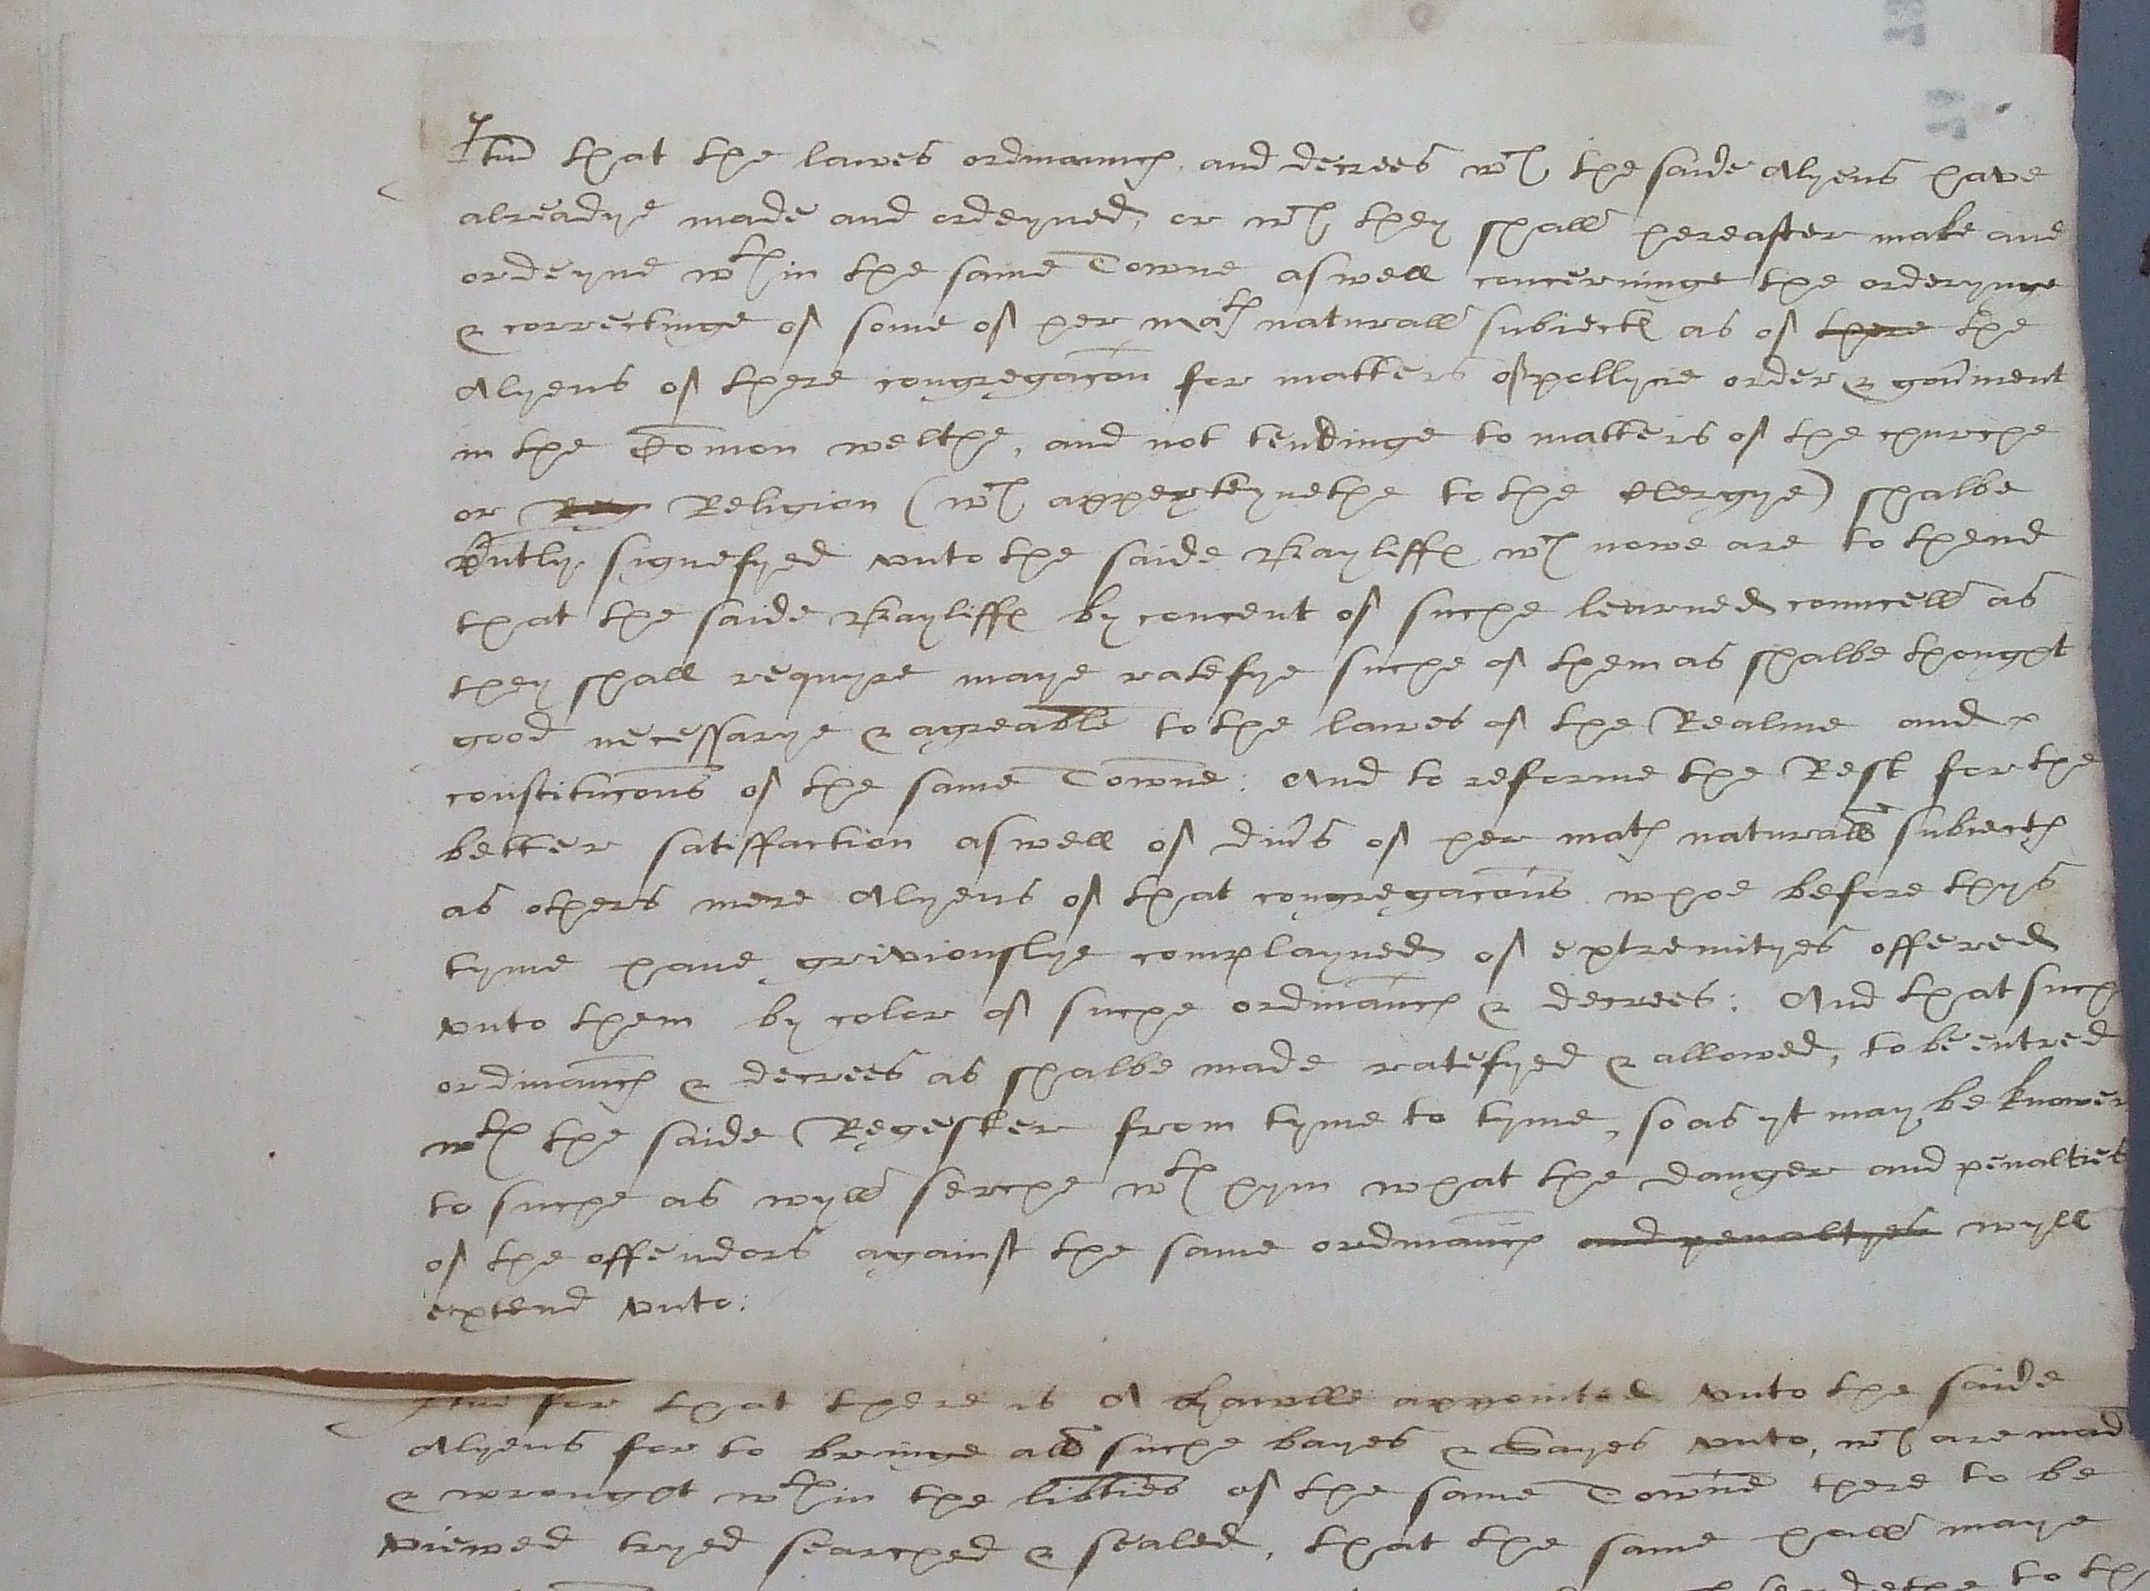 Itm that the lawes ordinaunc and decrees wch the saide Alyens have
alreadye made and ordeyned, or wch they shall hereafter make and
ordeyne wthin the same Towne aswell concerninge the orderynge
& correctinge of some of her Mats naturall subiects as of there the
Alyens of there congregacon for matters of pollycie order & gov'ment
in the Comon welthe, and not tendinge to matters of the churche
or Reg Religion (wch apperteynethe to the Clergye) shalbe
p'ntly signefyed unto the saide Bayliffs wch nowe are to thend
that the saide Bayliffs by concent of suche learned councell as
they shall requyre maye ratefye suche of them as shalbe thought
good necessarye & agreable to the lawes of the Realme and
constitucons of the same Towne: And to reforme the Rest for the
better satisffaction aswell of div's of her mats naturall subiects
as others mere Alyens of that congregacons whoe before thys
tyme have griviouslye complayned of extremityes offered
unto them by color of suche ordinaunc & decrees: And that such
ordinaunc & decrees as shalbe made ratefyed & allowed, to be entred
wth the saide Regester from tyme to tyme, so as yt may be knowen
to suche as wyll serche wth hym what the danger and penalties
of the offendors against the same ordinaunc and penaltyes wyll
extend unto:
Itm for that there is A Hawlle appointed unto the saide
Alyens for to bringe all suche bayes & Sayes unto, wch are mad
& wrought wthin the lib'ties of the same Towne there to be
viewed tryed searched & sealed, that the same hall maye
to th